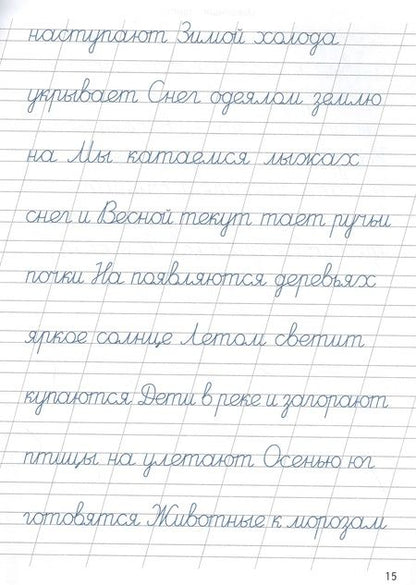 наступают Зимой холода
укрывает Снег одеялом землю
на Мы катаемся лыжах
снег и Весной текут тает ручьи
почки На появляются деревьях
яркое солнце Летом светит
купаются Дети в реке и загорают
птицы на улетают Осенью юг
готовятся Животные к морозам
15